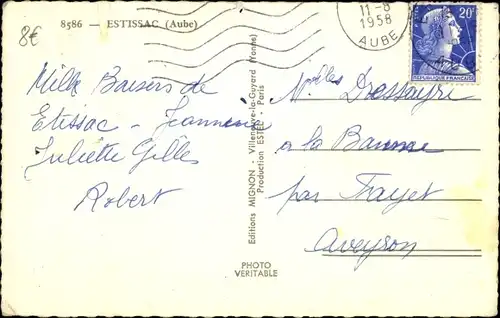 8586 — ESTISSAC (Aube)
8€
11-8
1958
AUBE
20F
REPUBLIQUE FRANÇAISE
Mille Baisers de
Etissac - Jeannine
Juliette Gilles
Robert
Editions MIGNON - Villeneuve-la-Guyard (Yonne)
Production ESTEL - Paris
PHOTO
VERITABLE
Melles
à la Baume
par Fayet
Aveyron